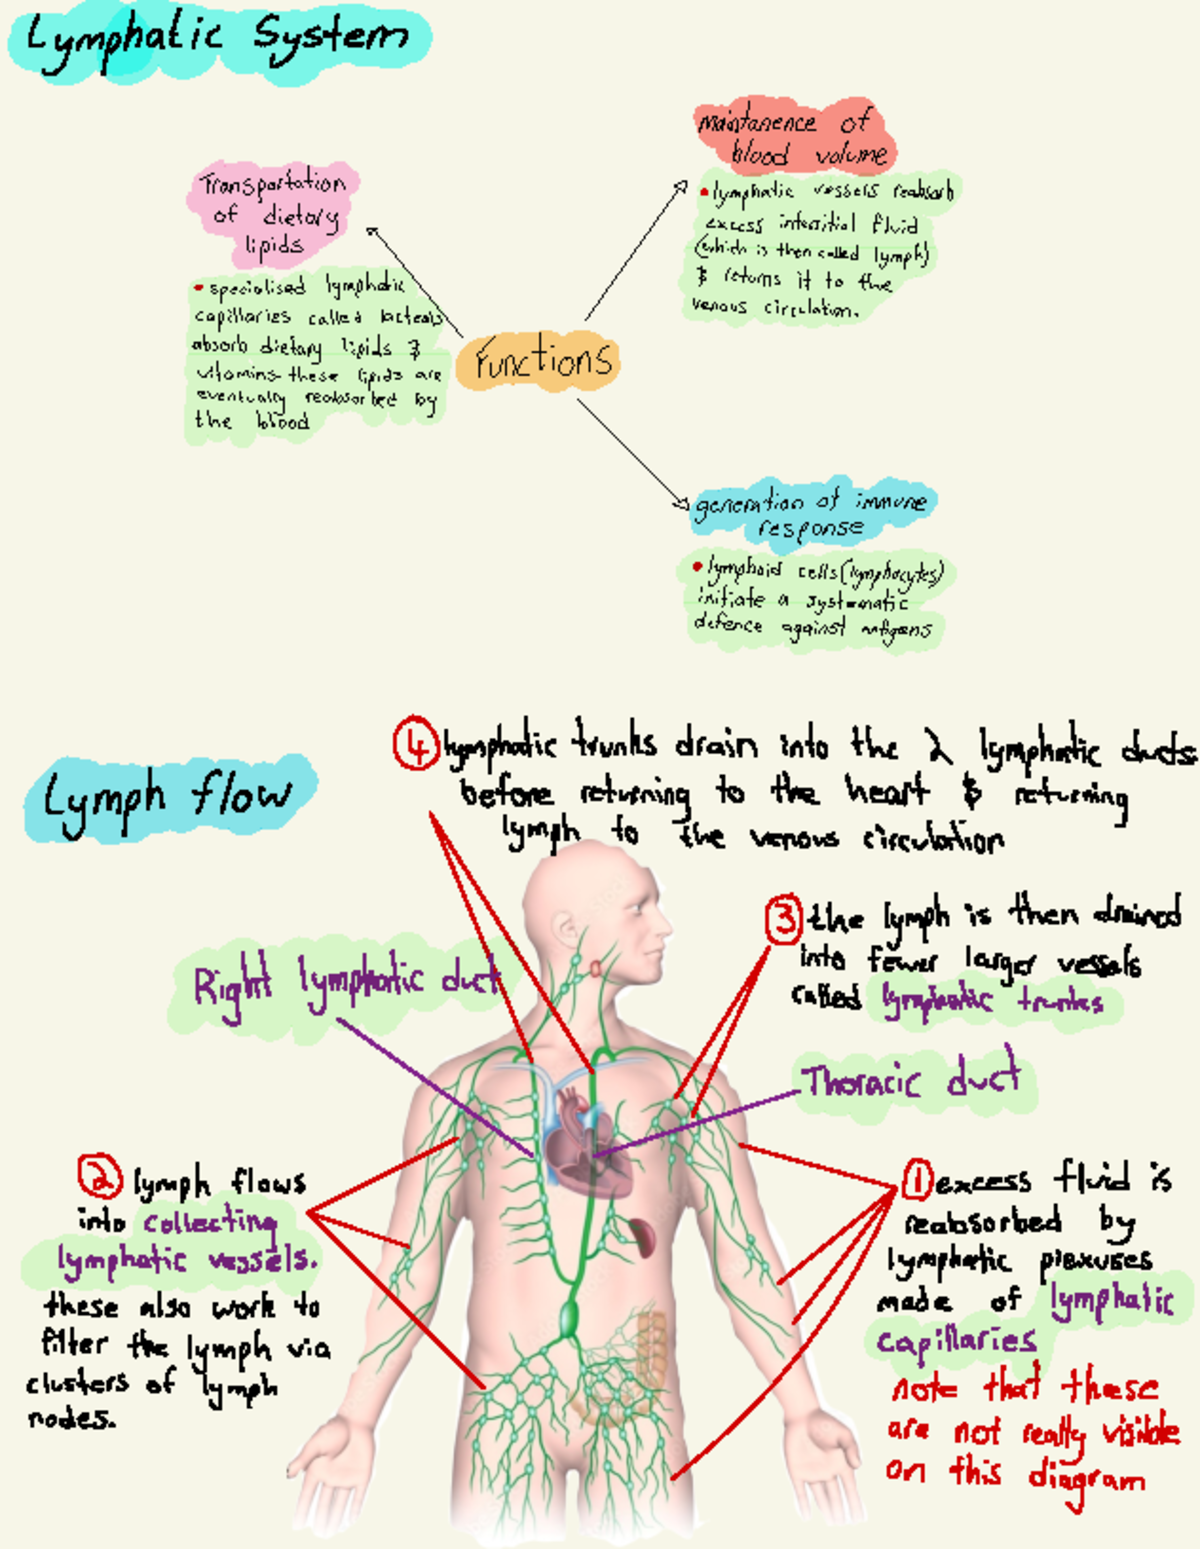 Lymphatic System
Transportation
of dietary
lipids
• specialised lymphatic
capillaries called lacteals
absorb dietary lipids &
vitamins these lipids are
eventually reabsorbed by
the blood
Functions
maintanence of
blood volume
• lymphatic vessels reabsorb
excess intersitial fluid
(which is then called lymph)
& returns it to the
venous circulation.
generation of immune
response
• lymphoid cells (lymphocytes)
initiate a systematic
defence against antigens
Lymph flow
④ lymphatic trunks drain into the 2 lymphatic ducts
before returning to the heart & returning
lymph to the venous circulation
③ the lymph is then drained
into fewer larger vessels
called lymphatic trunks
Right lymphatic duct
Thoracic duct
② lymph flows
into collecting
lymphatic vessels.
these also work to
filter the lymph via
clusters of lymph
nodes.
① excess fluid is
reabsorbed by
lymphatic plexuses
made of lymphatic
capillaries
note that these
are not really visible
on this diagram